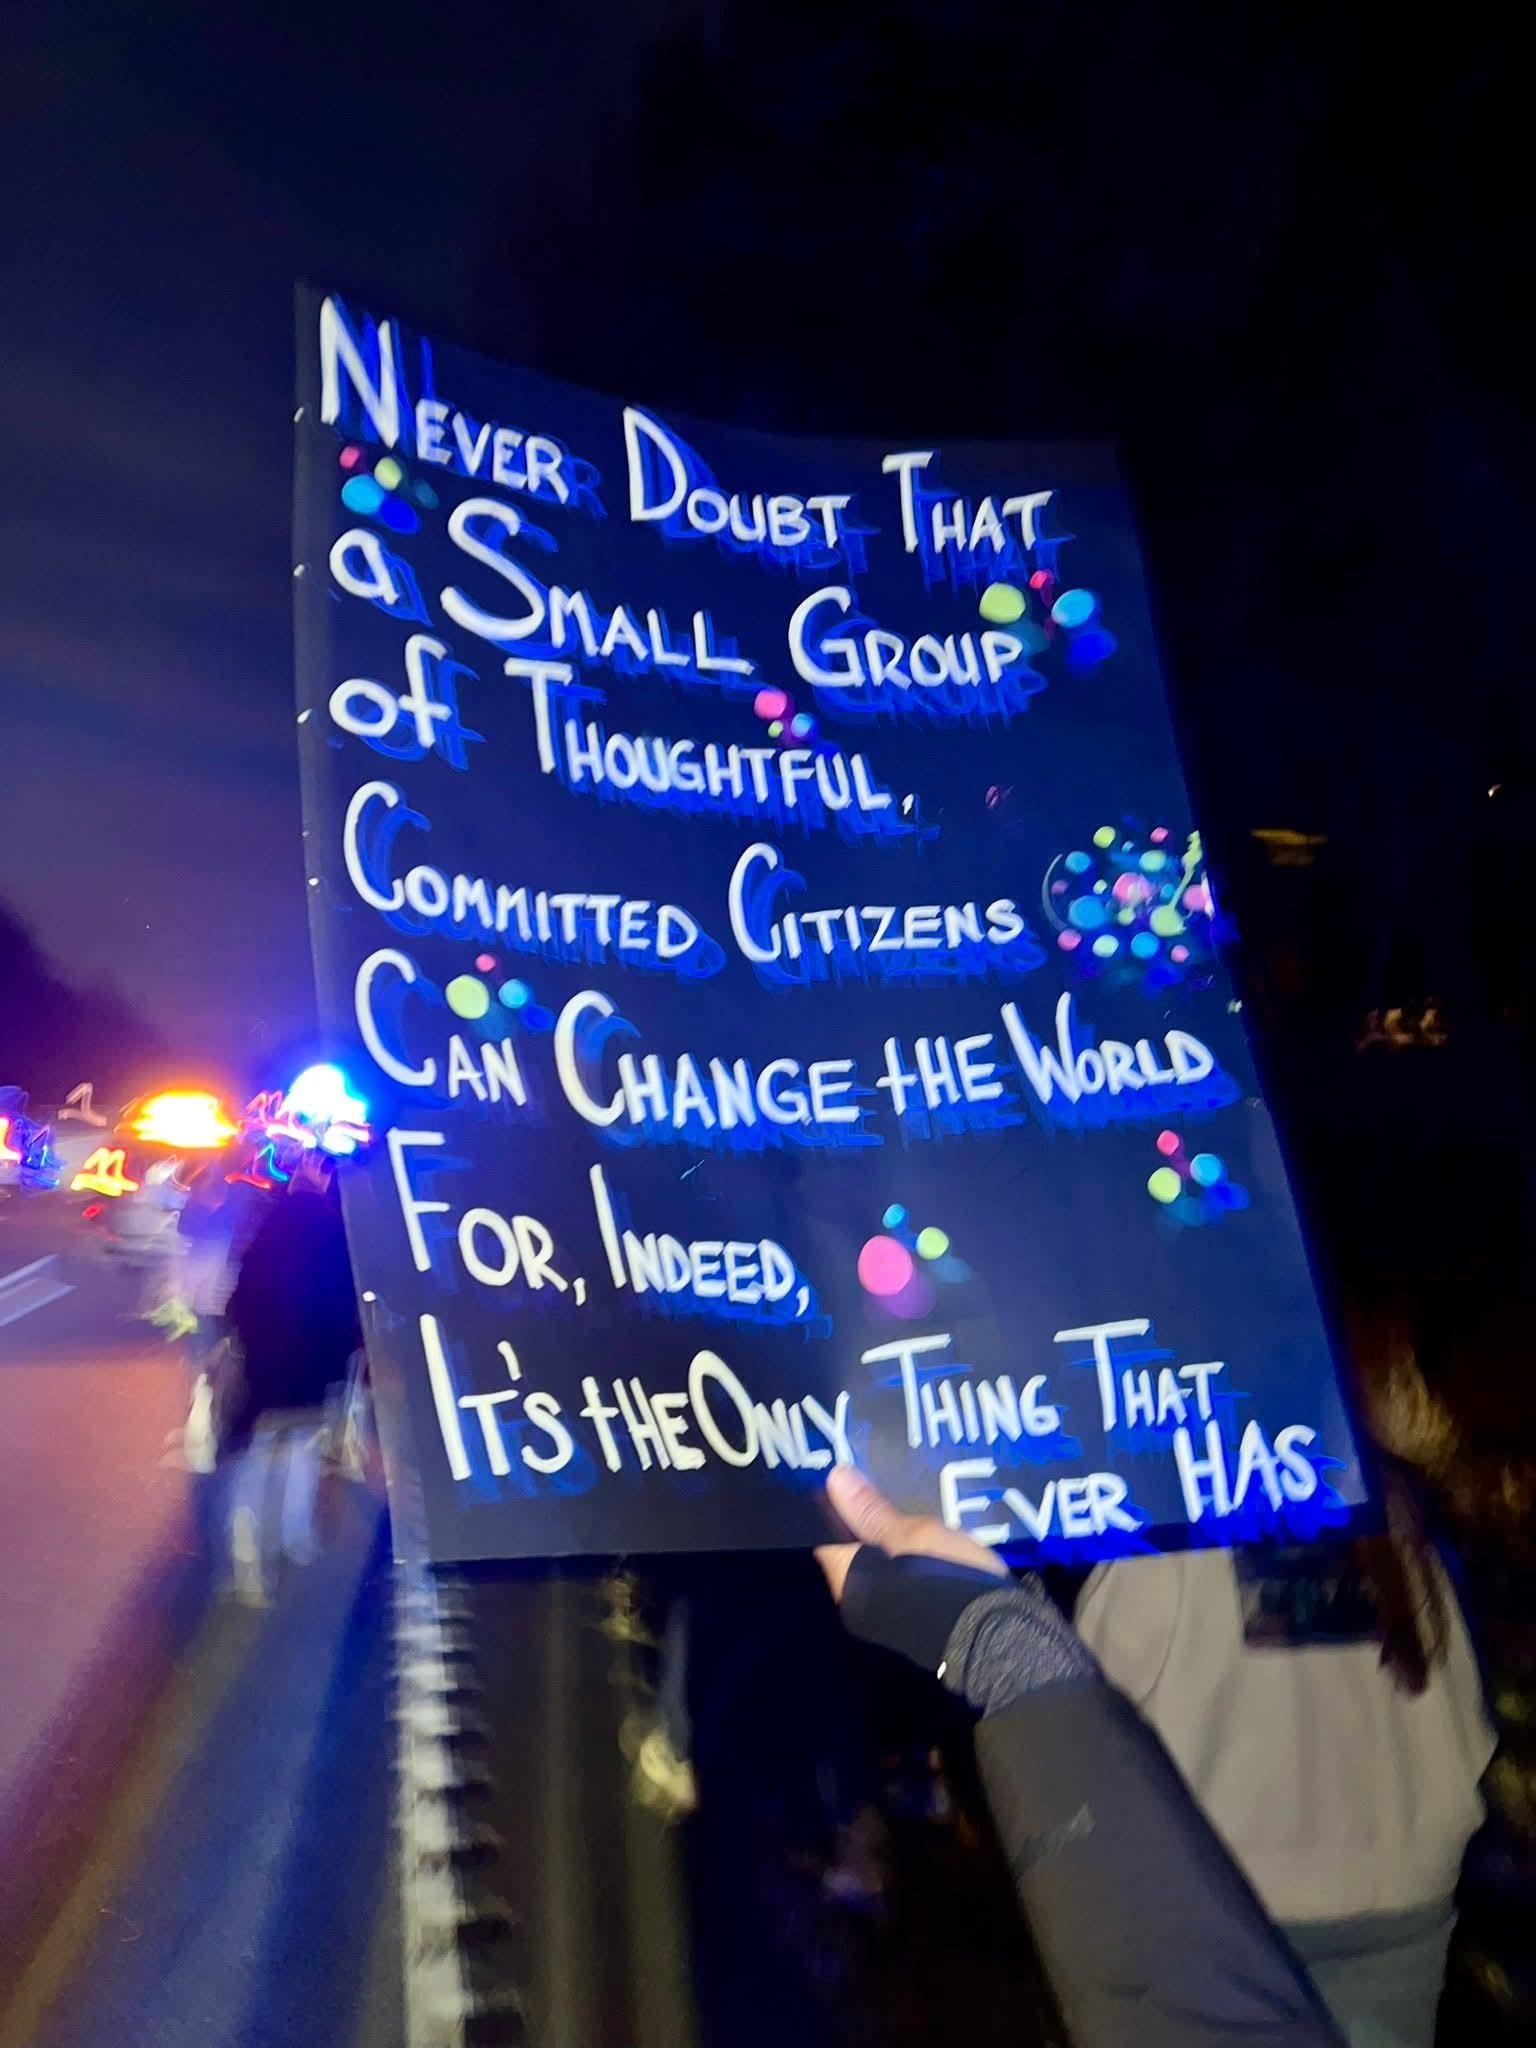 NEVER DOUBT THAT
a SMALL GROUP
of THOUGHTFUL,
COMMITTED CITIZENS
CAN CHANGE tHE WORLD
FOR, INDEED,
IT'S tHE ONLY THING THAT
EVER HAS